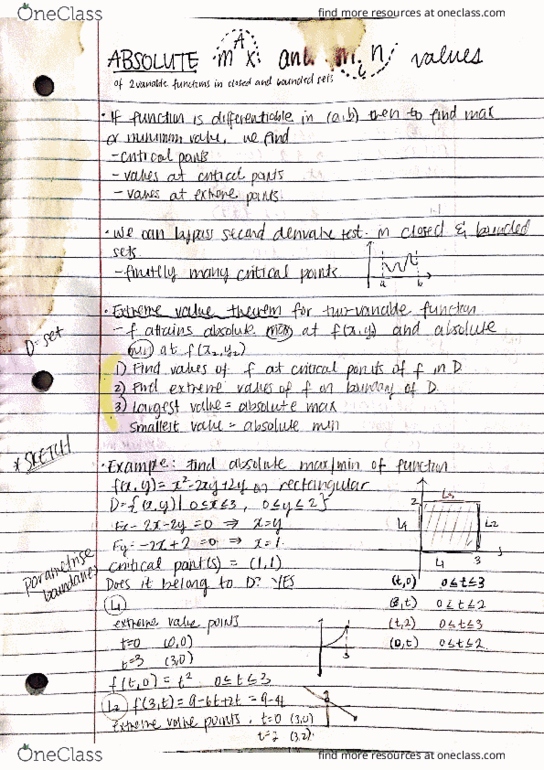 find more resources at oneclass.com
ABSOLUTE mAx and min values
of 2 variable functions in closed and bounded sets
· If function is differentiable in (a,b) then to find max
or minimum value, we find
- critical points
- values at critical points
- values at extreme points
· we can bypass second derivative test in closed & bounded
sets
- finitely many critical points
a b
· Extreme value theorem for two-variable function
- f attains absolute max at f(x,y) and absolute
min at f(x₂,y₂)
D = set
1) Find values of f at critical points of f in D
2) Find extreme values of f on boundary of D
3) largest value = absolute max
smallest value = absolute min
* SKETCH
· Example: find absolute max/min of function
f(x,y) = x²-2xy+2y on rectangular
D={(x,y)| 0≤x≤3, 0≤y≤2}
Fx = 2x-2y=0 ⇒ x=y
Fy = -2x+2=0 ⇒ x=1
critical point(s) = (1,1)
Does it belong to D? YES
parametrise
boundaries
2 L3
L4 L2
L1 3
(t,0) 0≤t≤3
(3,t) 0≤t≤2
(t,2) 0≤t≤3
(0,t) 0≤t≤2
L1
extreme value points
t=0 (0,0)
t=3 (3,0)
3
f(t,0) = t² 0≤t≤3
L2 f(3,t) = 9-6t+2t = 9-4t
extreme value points. t=0 (3,0)
t=2 (3,2)
OneClass
find more resources at oneclass.com